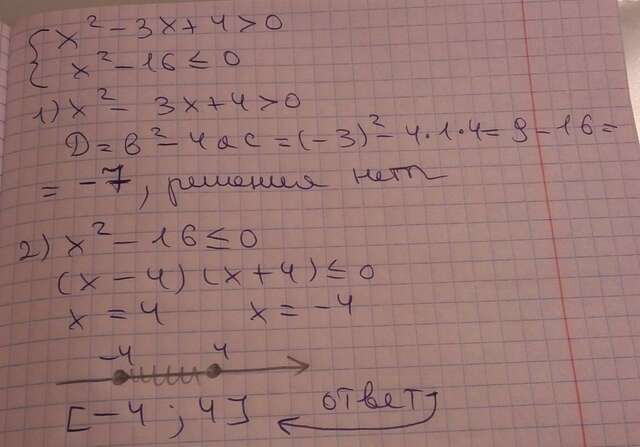 { x² - 3x + 4 > 0
x² - 16 ≤ 0
1) x² - 3x + 4 > 0
D = в² - 4ac = (-3)² - 4·1·4 = 9 - 16 =
= -7, решения нет
2) x² - 16 ≤ 0
(x - 4) (x + 4) ≤ 0
x = 4 x = -4
-4 4
[-4 ; 4] ответ